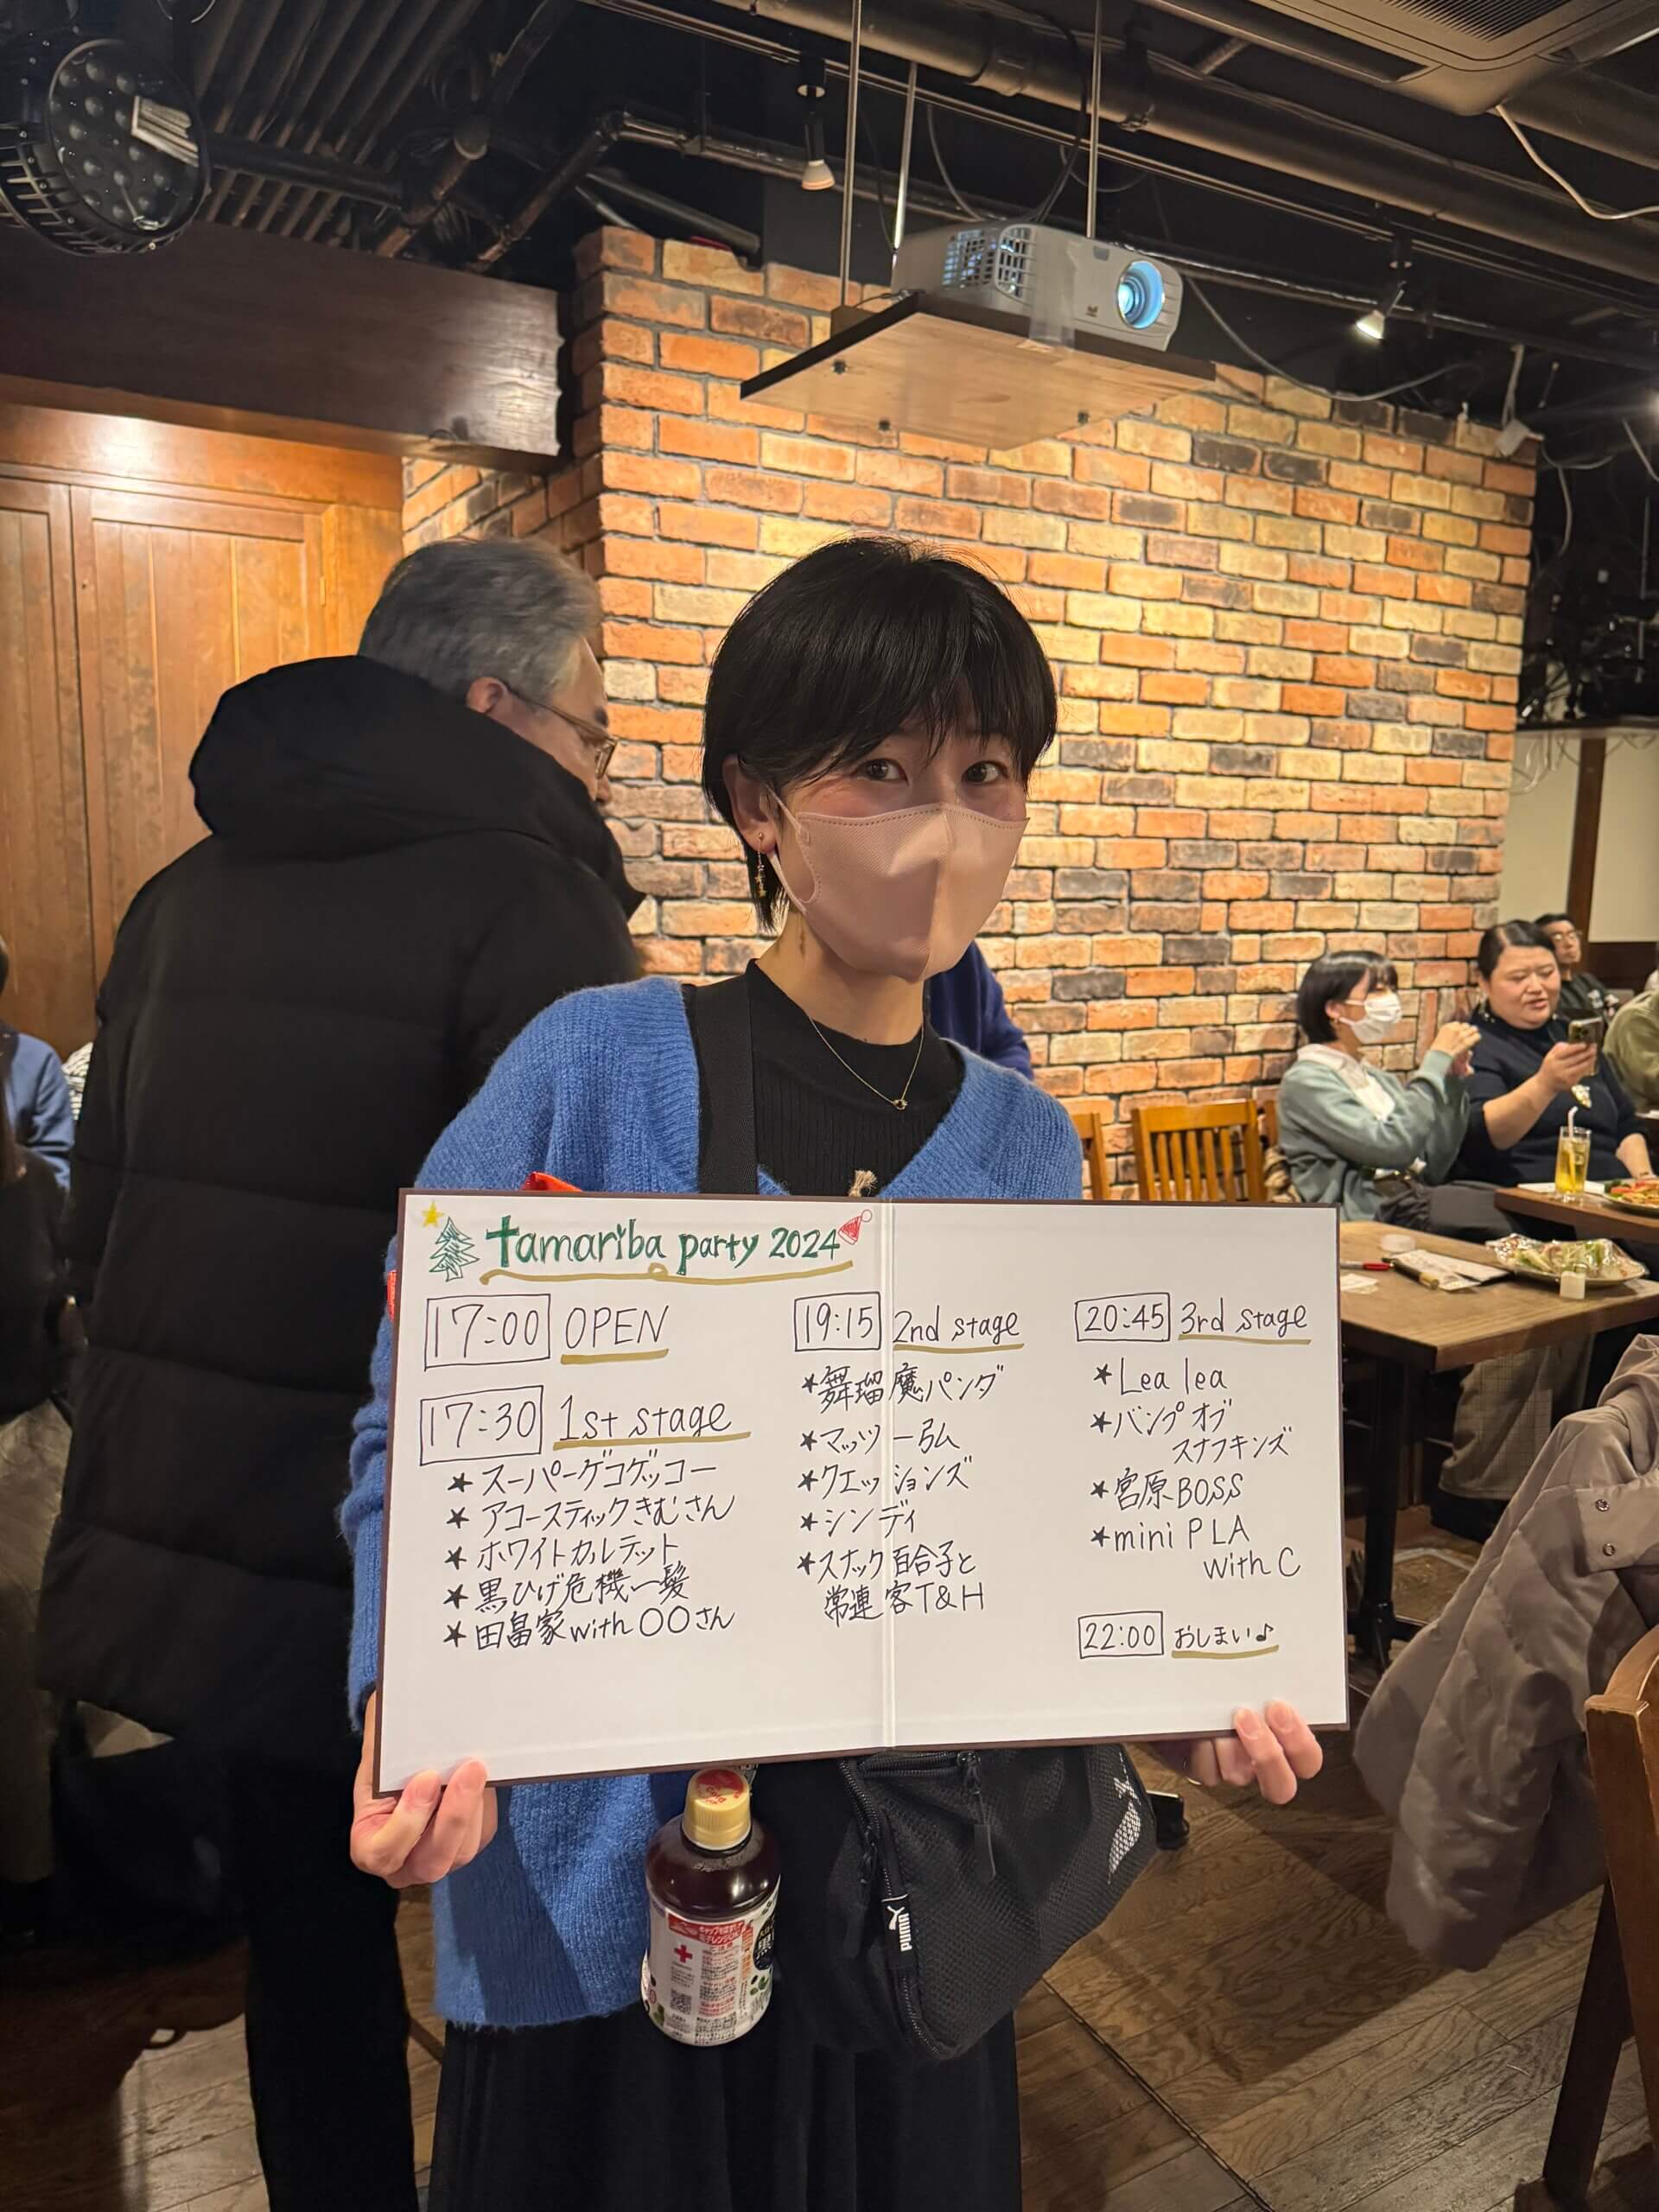 tamariba party 2024
17:00 OPEN
17:30 1st stage
★スーパーゲコゲッコー
★アコースティックきむさん
★ホワイトカルテット
★黒ひげ危機一髪
★田畠家with〇〇さん
19:15 2nd stage
★舞瑠魔パンダ
★マッツー弘
★クエッションズ
★シンディ
★スナック百合子と
常連客T&H
20:45 3rd stage
★Lea lea
★バンプオブ
スナフキンズ
★宮原BOSS
★mini PLA
with C
22:00 おしまい♪
PUMA